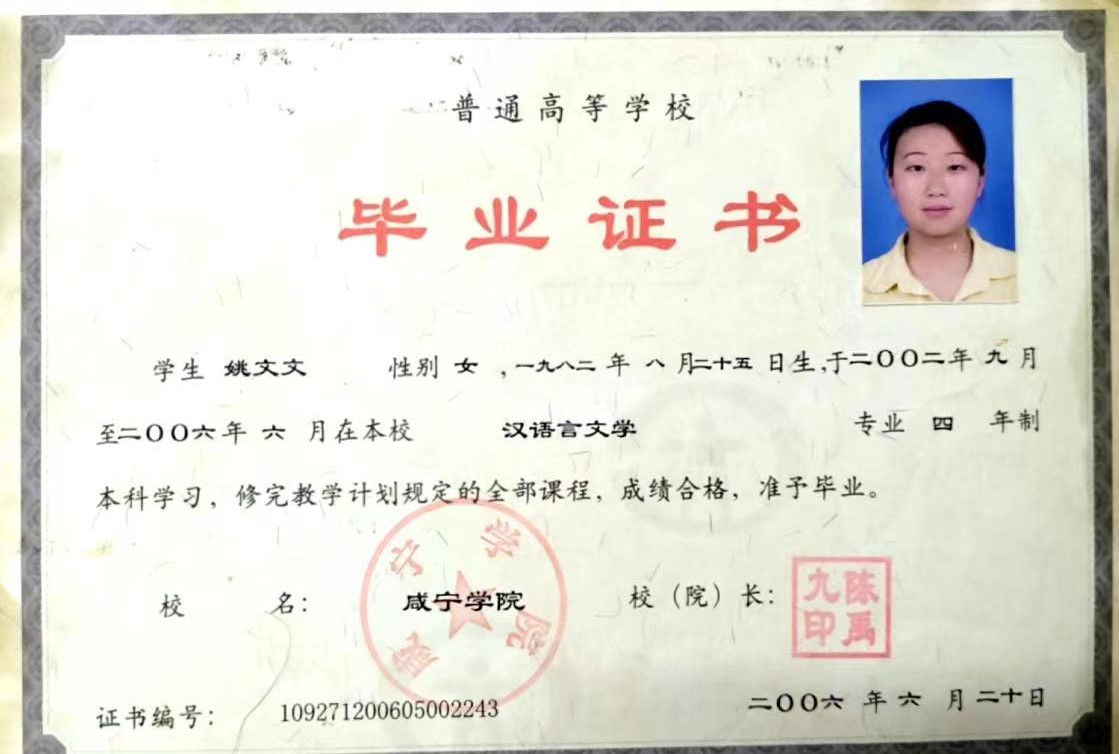 普通高等学校
毕业证书
学生 姚文文 性别 女 ,一九八二 年 八 月二十五 日生,于二〇〇二年 九 月
至二〇〇六年 六 月在本校 汉语言文学 专业 四 年制
本科学习，修完教学计划规定的全部课程，成绩合格，准予毕业。
校 名： 咸宁学院 校（院）长：
咸宁学院
陈禹九印
证书编号： 109271200605002243 二〇〇六 年 六 月 二十日